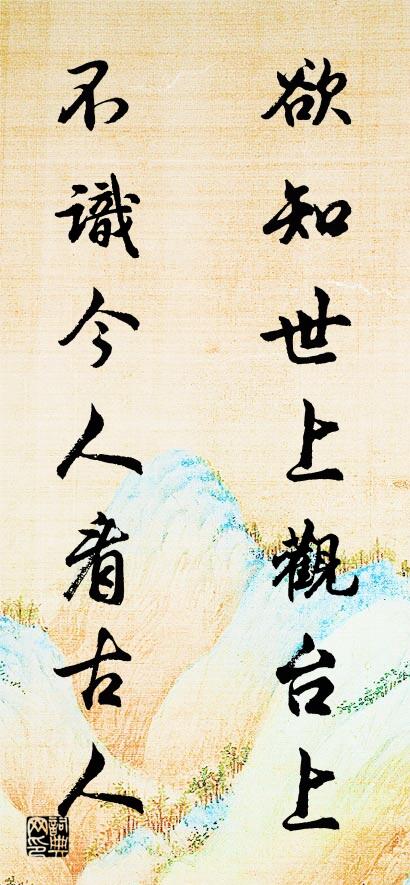 欲知世上觀台上
不識今人看古人
詞典网印